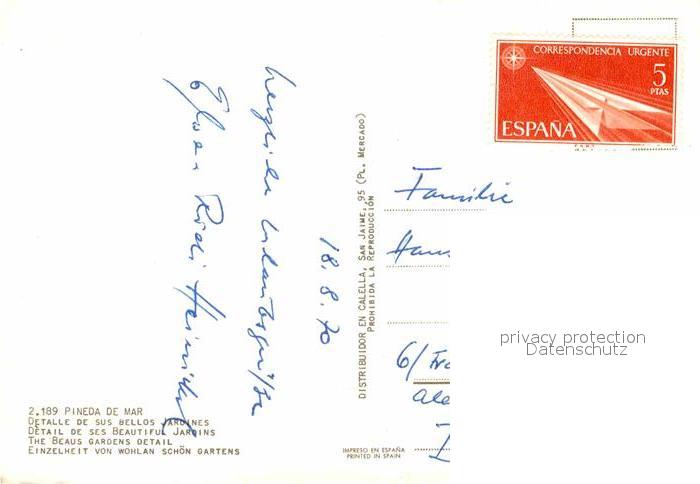 CORRESPONDENCIA URGENTE
5
PTAS
ESPAÑA
18.8.70
herzliche Urlaubsgrüße
Rudi
DISTRIBUIDOR EN CALELLA, SAN JAIME, 95 (PL. MERCADO)
PROHIBIDA LA REPRODUCCIÓN
Familie
Hans
6/Fra
privacy protection
Datenschutz
2.189 PINEDA DE MAR
DETALLE DE SUS BELLOS JARDINES
DÉTAIL DE SES BEAUTIFUL JARDINS
THE BEAUS GARDENS DETAIL
EINZELHEIT VON WOHLAN SCHÖN GARTENS
IMPRESO EN ESPAÑA
PRINTED IN SPAIN